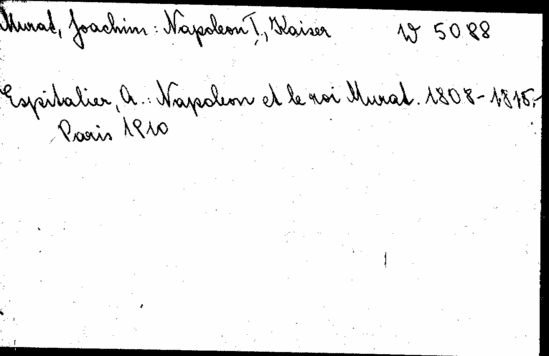 Murat, Joachim: Napoleon I., Kaiser W 5088
Espitalier, A.: Napoleon et le roi Murat. 1808-1815.-
Paris 1910